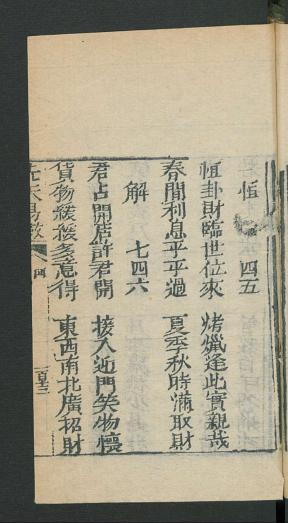 恒 四五
恒卦財臨世位來 烤爉逢此實親哉
春間利息乎乎過 夏季秋時滿取財
解 七四六
君占開店許君開 接入近門笑物懷
貨物緩緩多意得 東西南北廣招財
先天易數 四 百三